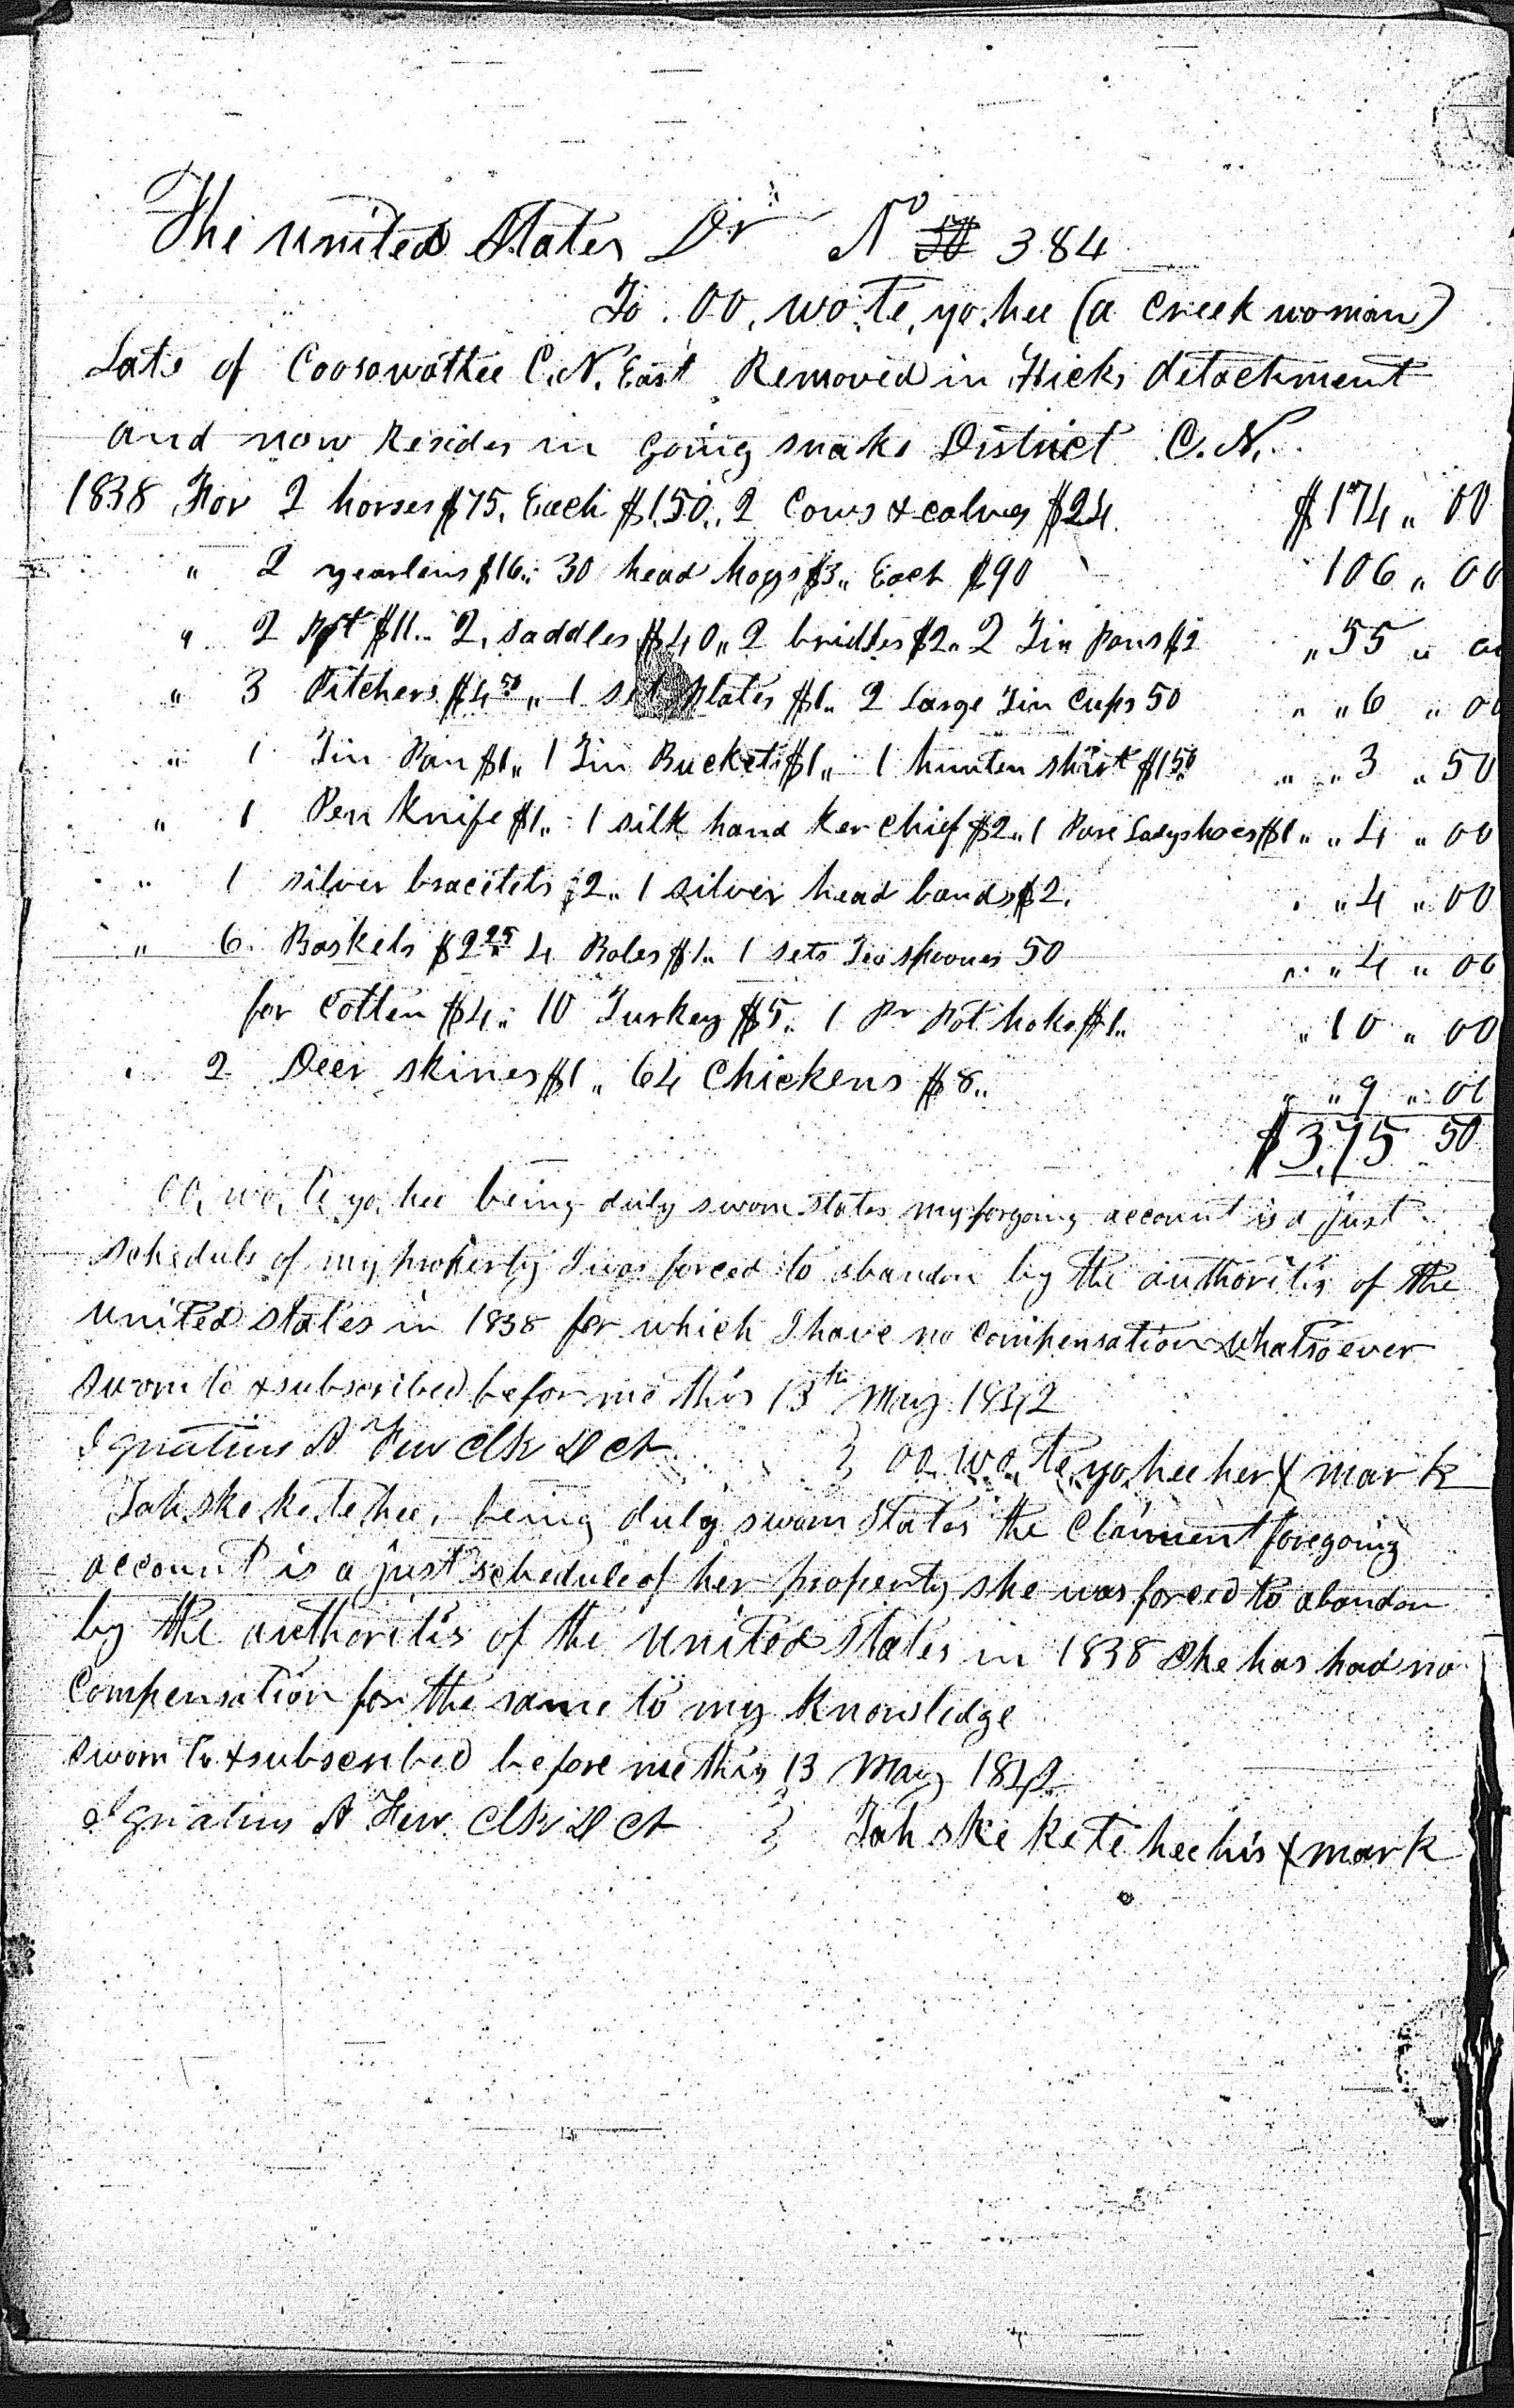 The United States Dr No 384
To Oo, wo, te, yo, hee (a Creek woman)
Late of Coosawattee C. N. East Removed in Hicks detachment
and now Resides in going snake District C. N.
1838 For 2 horses $75. Each $150,, 2 Cows & calves $24. $174 ,, 00
,, 2 yearlins $16,, 30 head hogs $3,, Each $90 106 ,, 00
,, 2 Pot $11,, 2, saddles $40,, 2 bridles $2,, 2 Tin Pans $2 ,, 55 ,, 00
,, 3 Pitchers $4 50 ,, 1 set Plates $1,, 2 Large Tin Cups 50 ,, ,, 6 ,, 00
,, 1 Tin Pan $1,, 1 Tin Bucket $1,, 1 hunten shirt $1 50 ,, ,, 3 ,, 50
,, 1 Pen Knife $1,, 1 silk hand Ker chief $2,, 1 Pare Ladyshoes $1,, ,, 4 ,, 00
,, 1 silver bracelets $2,, 1 silver head bands $2. ,, 4 ,, 00
,, 6 Baskets $2 25 4 Boles $1,, 1 sets Tea spoones 50 ,, ,, 4 ,, 00
for Cotten $4,, 10 Turkey $5,, 1 Pr Pot hoks $1,, ,, 10 ,, 00
2 Deer skines $1 ,, 64 Chickens $8,, ,, ,, 9 ,, 00
$375 50
Oo, wo, te yo, hee being duly sworn states my forgoing account is a just
schedule of my property I was forced to abandon by the authoritis of the
united states in 1838 for which I have no compensation whatsoever
sworn to & subscribed before me this 13th May 1842
Ignatius A Few Clk D Ct } oo wo, te, yo, hee her X mark
Tah ske ke te hee, being duly sworn States the Claiment foregoing
account is a just schedule of her property she was forced to abandon
by the authoritis of the united states in 1838 She has had no
Compensation for the same to my Knowledge
sworn to & subscribed before me this 13 May 1842
Ignatius A Few Clk D Ct } Tah ske ke te hee his X mark